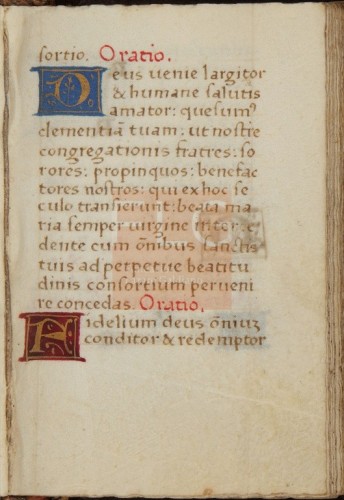 sortio. Oratio.
Deus venie largitor
& humane salutis
amator: quesumꝰ
clementiā tuam. ut nostre
congregationis fratres: so
rores: propinquos: benefac
tores nostros: qui ex hoc se
culo transierunt: beata ma
ria semper virgine interce
dente cum oñibus sanctis
tuis ad perpetue beatitu
dinis consortium perveni
re concedas. Oratio.
Fidelium deus oñiuꝫ
conditor & redemptor